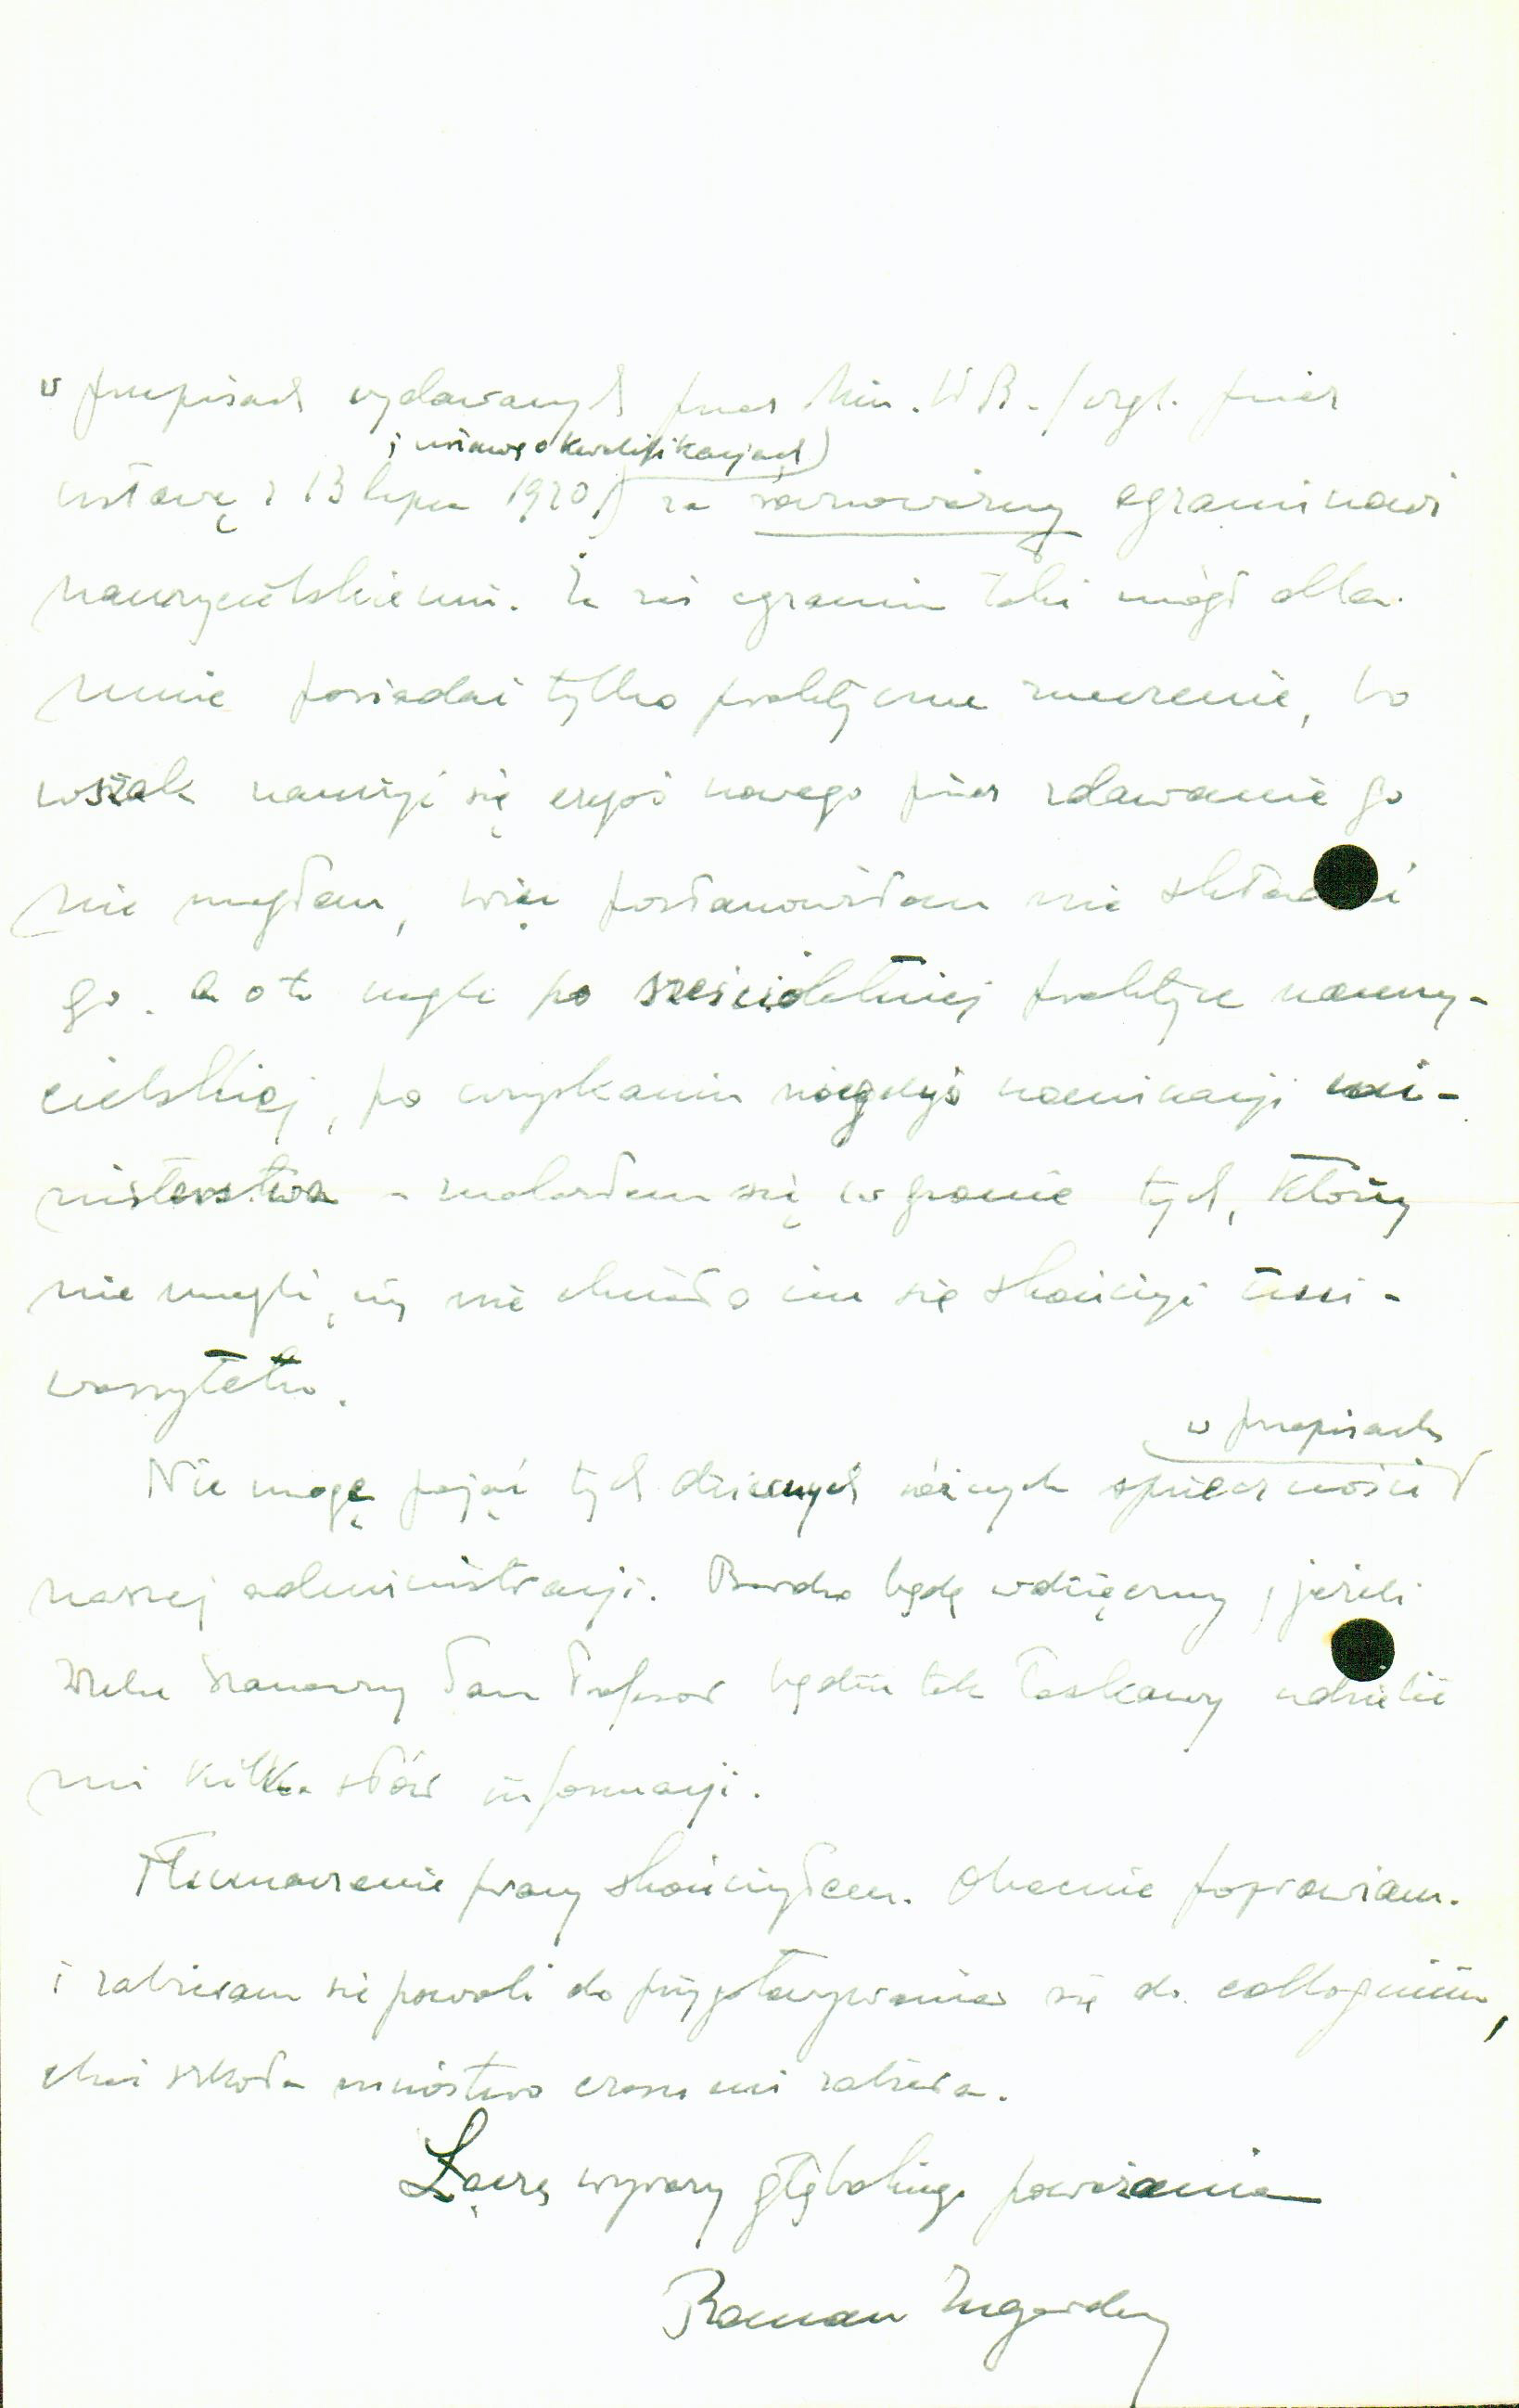 w przepisach wydawanych przez Min. W.R. /wzgl. przez
i ustawę o kwalifikacjach)
ustawę z 13 lipca 1920/ za równoważny egzaminowi
nauczycielskiemu. Że zaś egzamin taki mógł dla
mnie posiadać tylko praktyczne znaczenie, bo
wszak nauczyć się czegoś nowego przez zdawanie go
nie mogłem, więc postanowiłem nie składać
go. A oto nagle po sześcioletniej praktyce nauczy-
cielskiej, po uzyskaniu niegdyś nominacji mi-
nisterstwa - znalazłem się w gronie tych, którzy
nie mogli, czy nie chciało im się skończyć uni-
wersytetu.
w przepisach
Nie mogę pojąć tych dziwnych różnych sprzeczności
naszej administracji. Bardzo będę wdzięczny, jeżeli
Wielce Szanowny Pan Profesor będzie tak łaskawy udzielić
mi kilka słów informacji.
Tłumaczenie pracy skończyłem. Obecnie poprawiam.
i zabieram się powoli do przygotowywania się do colloquium,
choć szkoła mnóstwo czasu mi zabiera.
Łączę wyrazy głębokiego poważania
Roman Ingarden